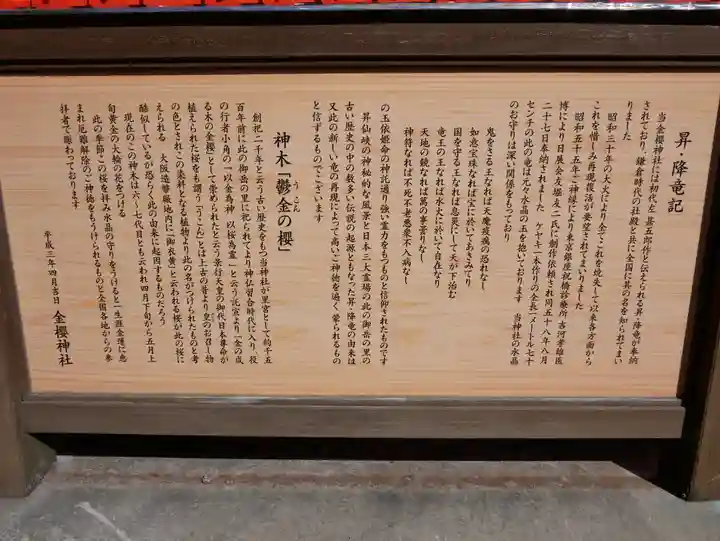 昇降竜記
当金櫻神社には初代左甚五郎作と伝えられる昇・降竜が奉納
されており、鎌倉時代の社殿と共に全国に其の名を知られてまい
りました
昭和三十年の大火により全てこれを焼失して以来各方面から
これを惜しみ再現復活が要望されてまいりました
昭和五十五年ご神縁により東京銀座祝橋診療所 吉河孝雄医
博により日展会友堀友二氏に制作依頼され同五十八年八月
二十七日奉納されました ケヤキ一本作りの全長一メートル七十
センチの此の竜は元々水晶の玉を抱いております 当神社の水晶
のお守りは深い関係をもっており
鬼をさる王なれば天魔疫病の恐れなし
如意宝珠なれば宝に於いてあきみてり
国を守る王なれば息災にして天が下治む
竜王の王なれば水火に於いて自在なり
天地の鏡なれば萬の事曇りなし
神符なれば不死不老悪象不入病なし
の玉依姫命の神花通り強い霊力をもつものと信仰されたものです
昇仙峡の神秘的な風景と日本三大霊場の此の御岳の里の
古い歴史の中の数多い伝説の起源ともなった昇・降竜の由来は
又此の新しい竜の再現によって高いご神徳を過く蒙られるもの
と信ずるものでございます
神木「鬱金の櫻」
うこん
創祀二千年と云う古い歴史をもつ当神社が里宮として約千五
百年前に此の御岳の里に祀られてより神仏習合時代に入り、役
の行者小角の「以金為神 以桜為霊」と云う託宣より「金の成
る木の金櫻」として崇められたと云う景行天皇の御代日本尊命が
植えられた桜をも謂う「うこん」とは上古の昔より皇のお召し物
の色とされこの染料となる植物より此の名がつけられたものと考
えられる 大阪造幣廠地内に「御衣黄」と云われる桜が此の桜に
酷似しているが恐らく此の由来に起因するものだろう
現在のこの神木は六～七代目とも云われ四月下旬から五月上
旬黄金の大輪の花をつける
此の季節この桜を拝み水晶の守りをうけると一生涯金運に恵
まれ厄難解除のご神徳もうけられるものと全国各地からの参
拝者で賑わっております
平成三年四月吉日 金櫻神社